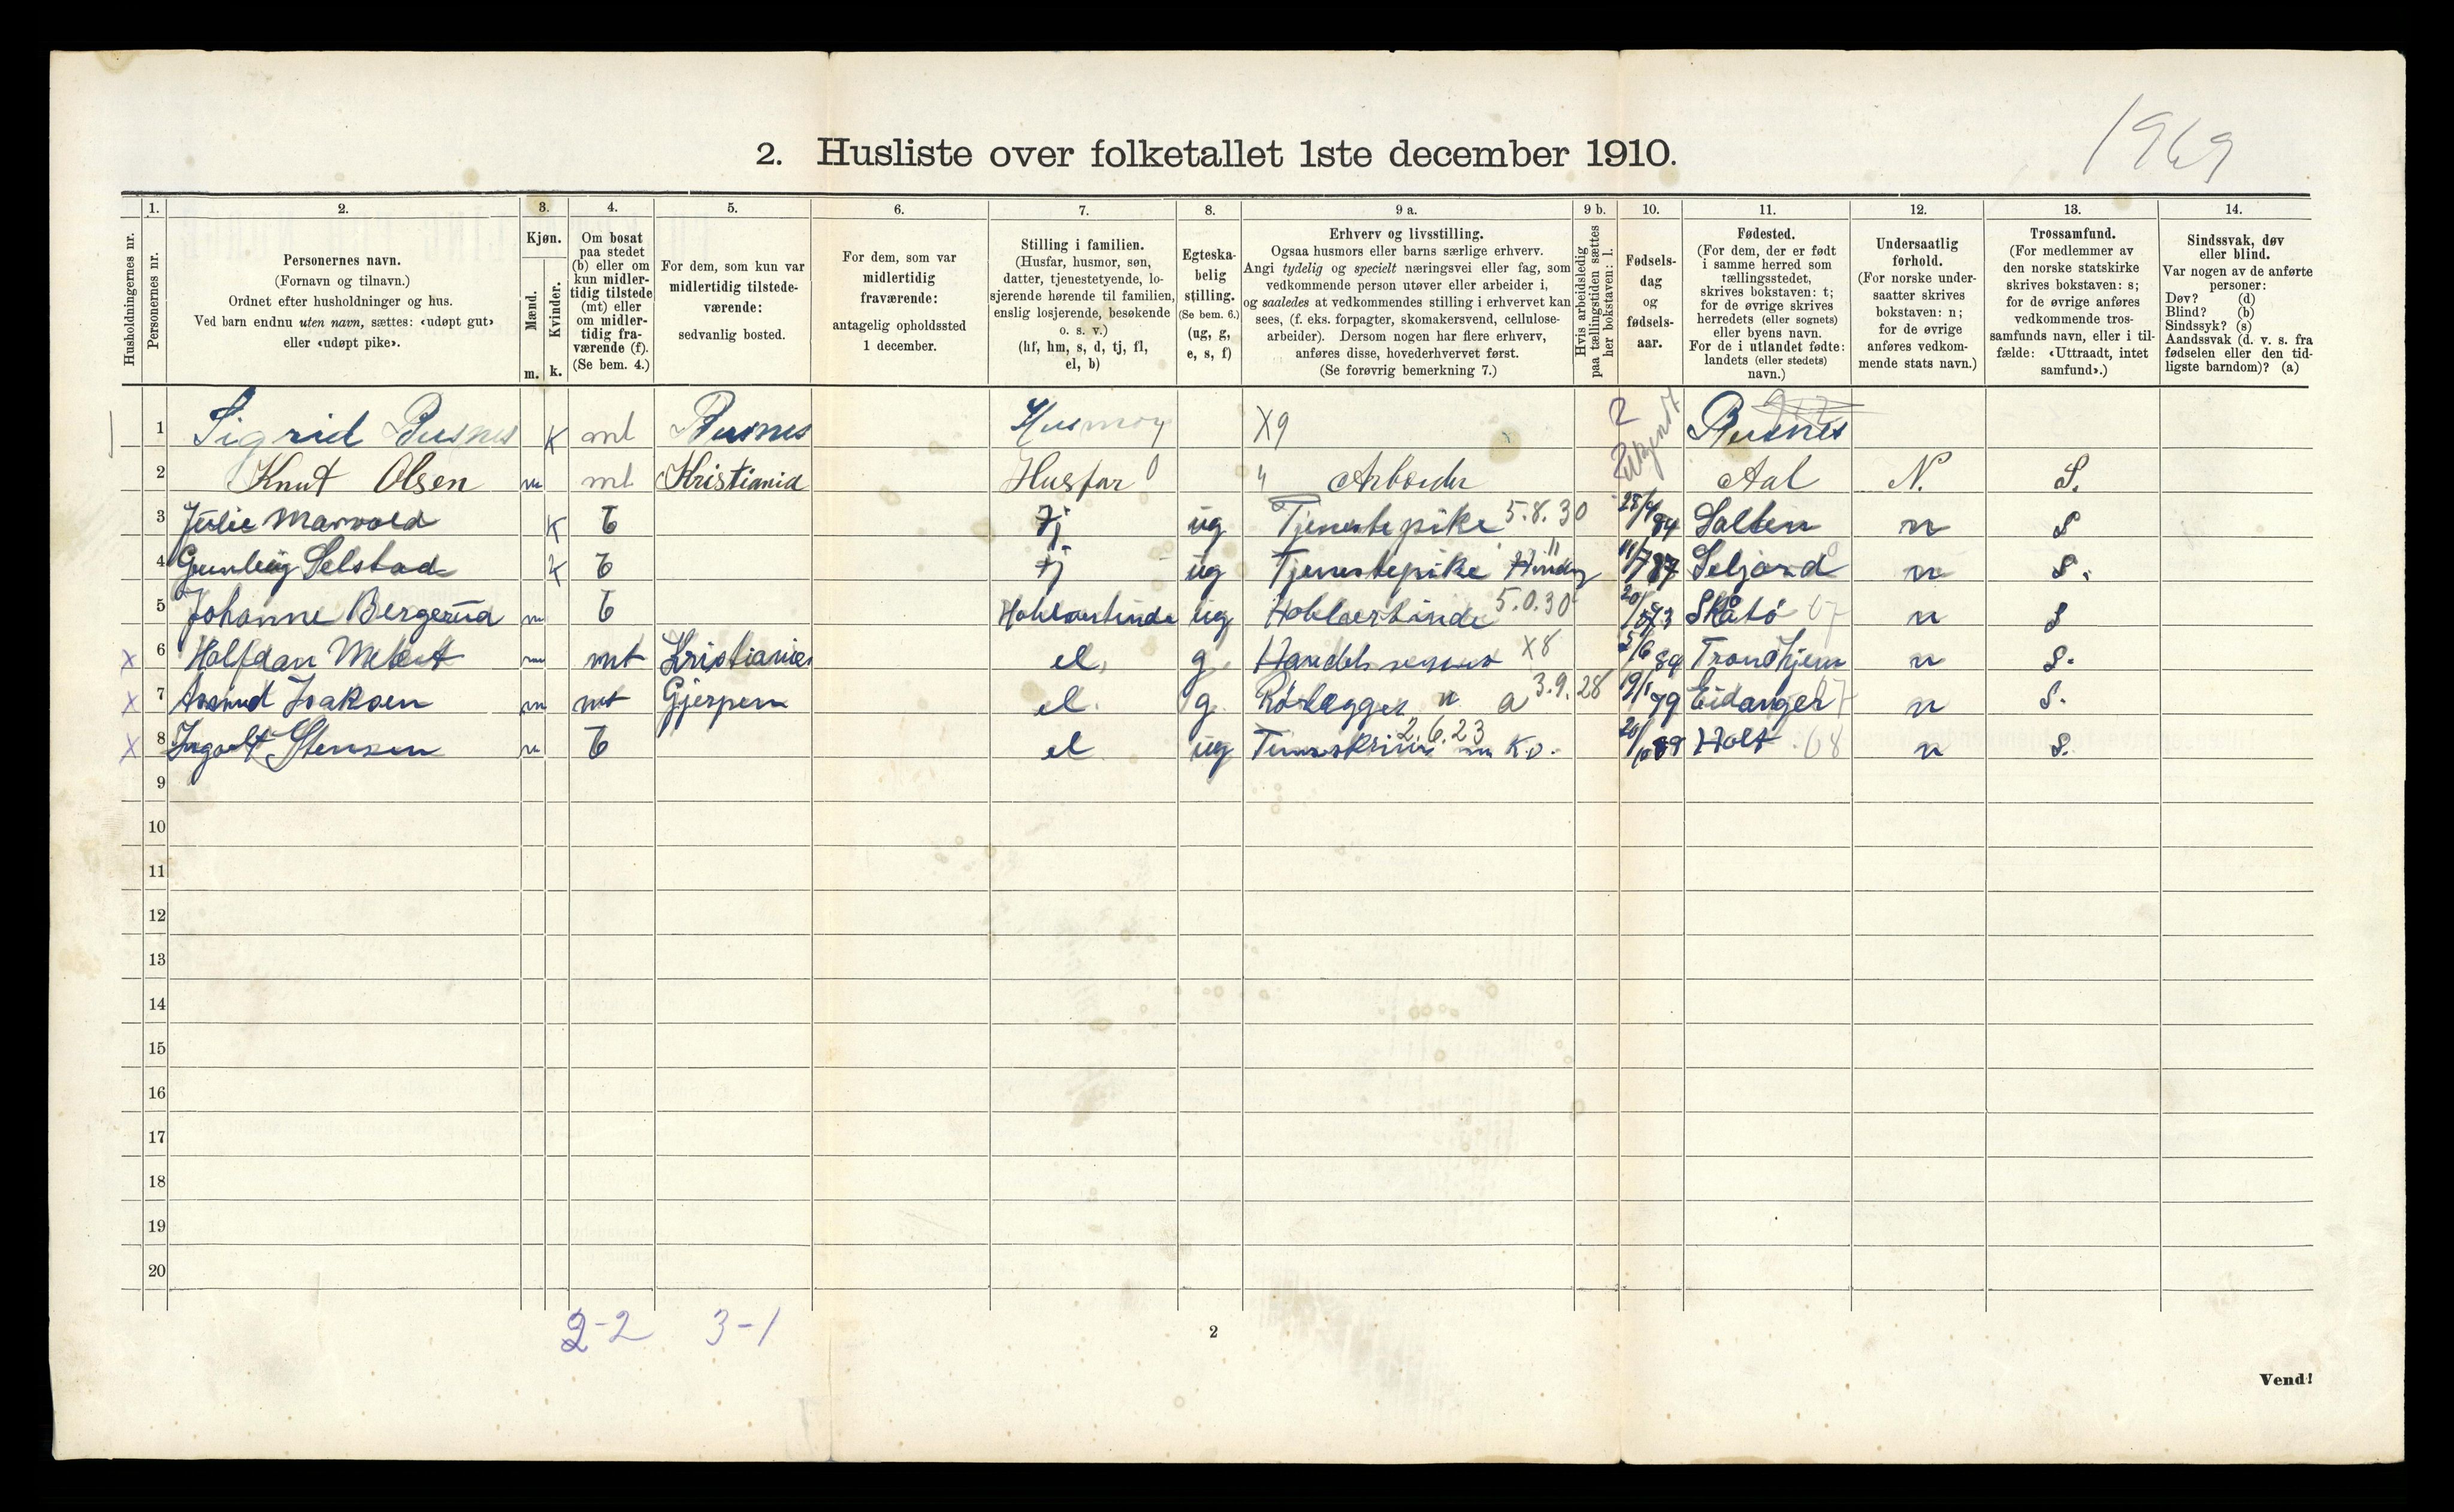 1969
2. Husliste over folketallet 1ste december 1910.
Husholdningernes nr.
1. Personernes nr.
2. Personernes navn.
(Fornavn og tilnavn.)
Ordnet efter husholdninger og hus.
Ved barn endnu uten navn, sættes: «udøpt gut»
eller «udøpt pike».
3. Kjøn.
Mænd. Kvinder.
m. k.
4. Om bosat
paa stedet
(b) eller om
kun midler-
tidig tilstede
(mt) eller
om midler-
tidig fra-
værende (f).
(Se bem. 4.)
5. For dem, som kun var
midlertidig tilstede-
værende:
sedvanlig bosted.
6. For dem, som var
midlertidig
fraværende:
antagelig opholdssted
1 december.
7. Stilling i familien.
(Husfar, husmor, søn,
datter, tjenestetyende, lo-
sjerende hørende til familien,
enslig losjerende, besøkende
o. s. v.)
(hf, hm, s, d, tj, fl,
el, b)
8. Egteska-
belig
stilling.
(Se bem. 6.)
(ug, g,
e, s, f)
9 a. Erhverv og livsstilling.
Ogsaa husmors eller barns særlige erhverv.
Angi tydelig og specielt næringsvei eller fag, som
vedkommende person utøver eller arbeider i,
og saaledes at vedkommendes stilling i erhvervet kan
sees, (f. eks. forpagter, skomakersvend, cellulose-
arbeider). Dersom nogen har flere erhverv,
anføres disse, hovederhvervet først.
(Se forøvrig bemerkning 7.)
9 b. Hvis arbeidsledig
paa tællingstiden sættes
her bokstaven: l.
10. Fødsels-
dag
og
fødsels-
aar.
11. Fødested.
(For dem, der er født
i samme herred som
tællingsstedet,
skrives bokstaven: t;
for de øvrige skrives
herredets (eller sognets)
eller byens navn.
For de i utlandet fødte:
landets (eller stedets)
navn.)
12. Undersaatlig
forhold.
(For norske under-
saatter skrives
bokstaven: n;
for de øvrige
anføres vedkom-
mende stats navn.)
13. Trossamfund.
(For medlemmer av
den norske statskirke
skrives bokstaven: s;
for de øvrige anføres
vedkommende tros-
samfunds navn, eller i til-
fælde: «Uttraadt, intet
samfund».)
14. Sindssvak, døv
eller blind.
Var nogen av de anførte
personer:
Døv? (d)
Blind? (b)
Sindssyk? (s)
Aandssvak (d. v. s. fra
fødselen eller den tid-
ligste barndom)? (a)
1 Sigrid Busnes K mt Busnes Husmor X9 2 Busnes
2 Knut Olsen m mt Kristiania Husfar " Arbeider Aal N. S.
3 Julie Marvold K b tj ug Tjenestepike 5.8.30 84 Salten n S
4 Gunleig Selstad K b tj ug Tjenestepike " 11/7 87 Seljord n S.
5 Johanne Bergerud m b ug 5.0.30 20/ 73 Skåtø 07 n S
X 6 Halfdan m mt Kristiania el. g. X8 5/6 89 Trondhjem n S.
X 7 Isaksen m mt Gjerpen el. g. Rørlægger a 3.9.28 19/1 79 Eidanger 07 n S.
X 8 Ingolf Stensen m b el ug 2.6.23 20/10 89 Holt 08 n S.
9
10
11
12
13
14
15
16
17
18
19
20
2-2 3-1
2
Vend!